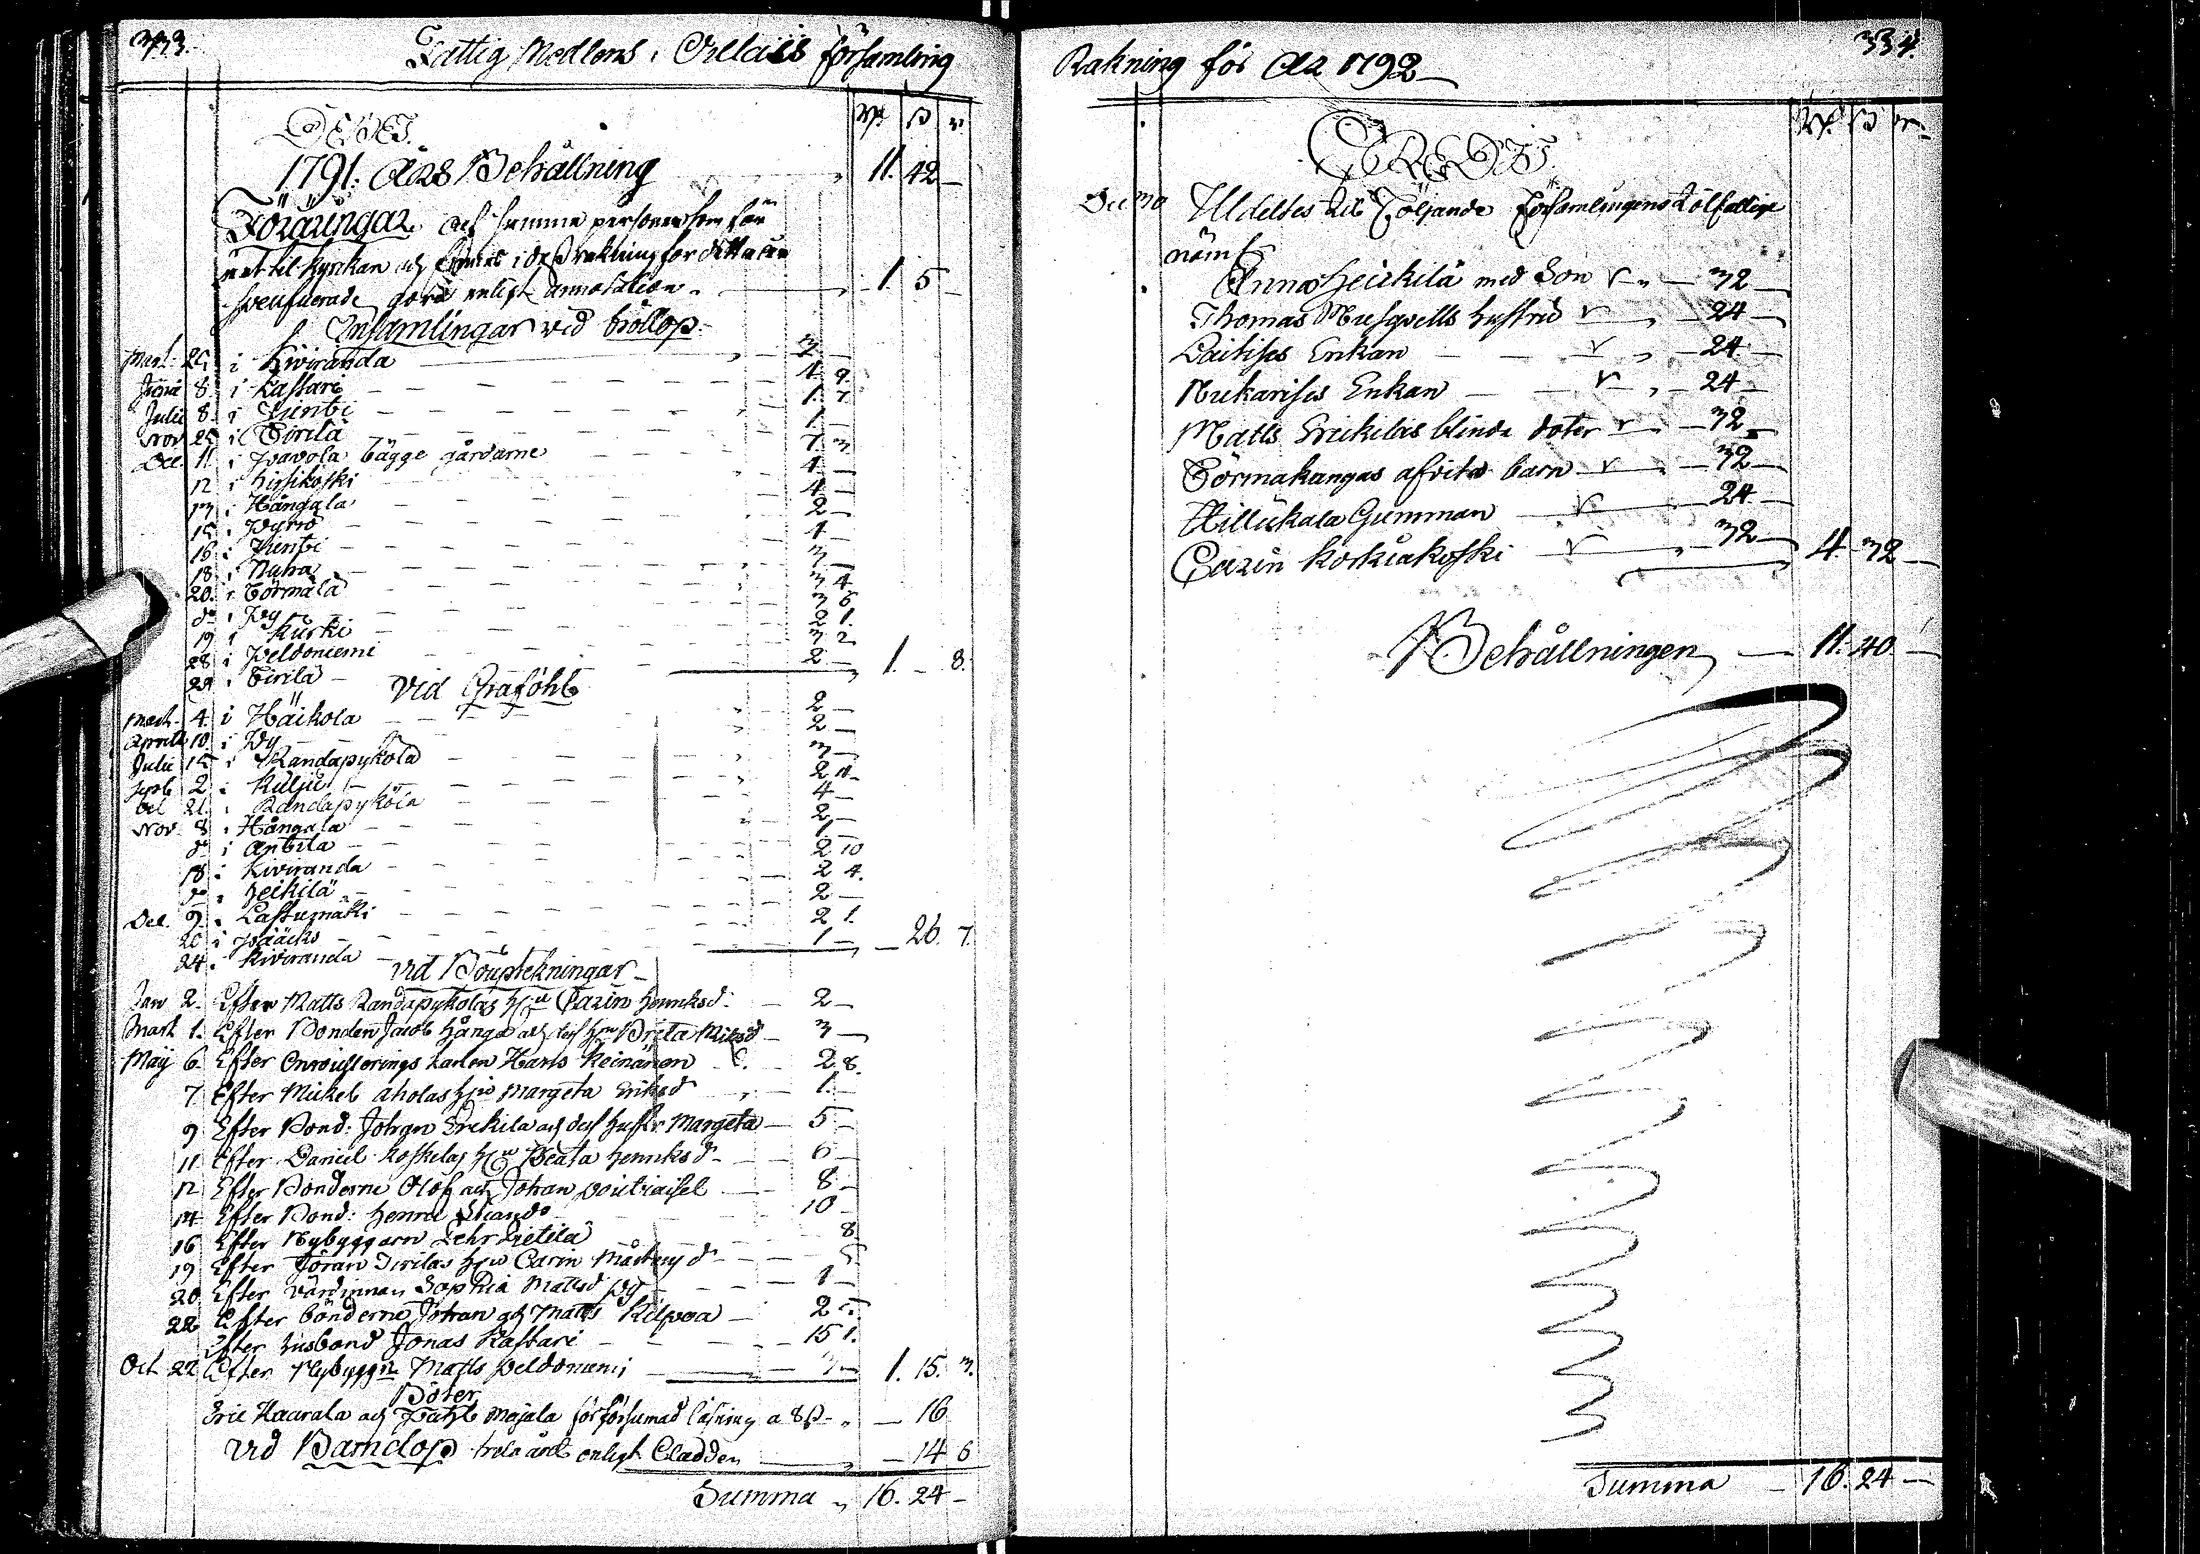 333.
Fattig Medlens i Orelais församling
DEBET.
1791. Års Behållning 11. 42 —
Föräringar af samma personer som för
mer til kyrkan och finnes i dess räkning för detta år
enligt annotation — 1. 5 —
Insamlingar vid bröllop
Mart. 25 i Kiviranda 3 —
Junii 8. i Kastari 1. 9.
Julii 8. i Yliribi 1. 7.
Nov 25 i Tirilä 1 —
Dec. 11. i Pavola bägge gårdarne 7. 3
12 i Hirsikoski 1 —
13 i Hångala 4 —
15 i Pyrrö 2 —
16 i 1 —
18 i Nahra 3 —
20. i Törmälä 3 4
do i Py 3 6
19 i Kurki 2 1.
28 i Peldoniemi 3 2
29 i Tirilä 2 — 1. — 8.
Vid Graföhl
Mart. 4. i Häikola 2 —
Aprill 10. i Py 2 —
Julii 15 i Randapyköla 3 —
Septb 2 i Kulju 2 11.
Oct 21. i Randapyköla 4 —
Nov. 8 i Hångala 2 —
do i Antila 1 —
18 i Kiviranda 2 10
do i Heikilä 2 4.
Dec. 9. i Lassumäki 2 —
20 i Pääcko 2 1.
24. i Kiviranda 1 — — 26. 7.
Vid Bouptekningar
Jan 2. Efter Matts Randapykolas hu Carin Henriksd. 2 —
Mart 1. Efter Bonden Jacob Hånga och dess hu Brita Miksd 3 —
Maij 6. Efter Hans Keinänen 2 8.
7 Efter Mickel Aholas hu Margeta Eriksd 1. —
9 Efter Bond: Johan Erekila och dess hustr. Margeta 5 —
11 Efter Daniel Koskelas hu Beata Henriksd 6 —
12 Efter Bönderne Olof och Johan Poutiaisel 8 —
14 Efter Bond: Henric 10 —
16 Efter Nybyggarn Pehr Pietilä 8
19 Efter Jöran Tirilas hu Carin Mårtensd 5
20 Efter värdinnan Sophia Mattsd Py 1 —
22 Efter bönderne Johan och Matts Kilpoa 2 5
Efter husbond Jonas Kastari 15 1.
Oct 22 Efter Nybyggr Matts Peldoniemi 3 — 1. 15. 3.
Böter
Eric Haarala och Majala för försumad läsning a 8 ß — 16
Vid Barndop hela året enligt Cladden — 14 6
Summa 16. 24 —
Räkning för År 1792
334.
CREDIT.
Dec 30 Utdeltes til följande församlingens Tolf fattige
näml
Anna Heickilä med Son — 32 —
Thomas hustru — 24 —
Laitises Enkan — 24 —
Nukarises Enkan — 24 —
Matts Erickiläs blinda doter — 32 —
Törmäkangas afvita barn — 32 —
Hillukala Gumman — 24 —
Carin Koskiakoski — 32 — 4. 32 —
Behållningen — 11. 40 —
Summa — 16. 24 —